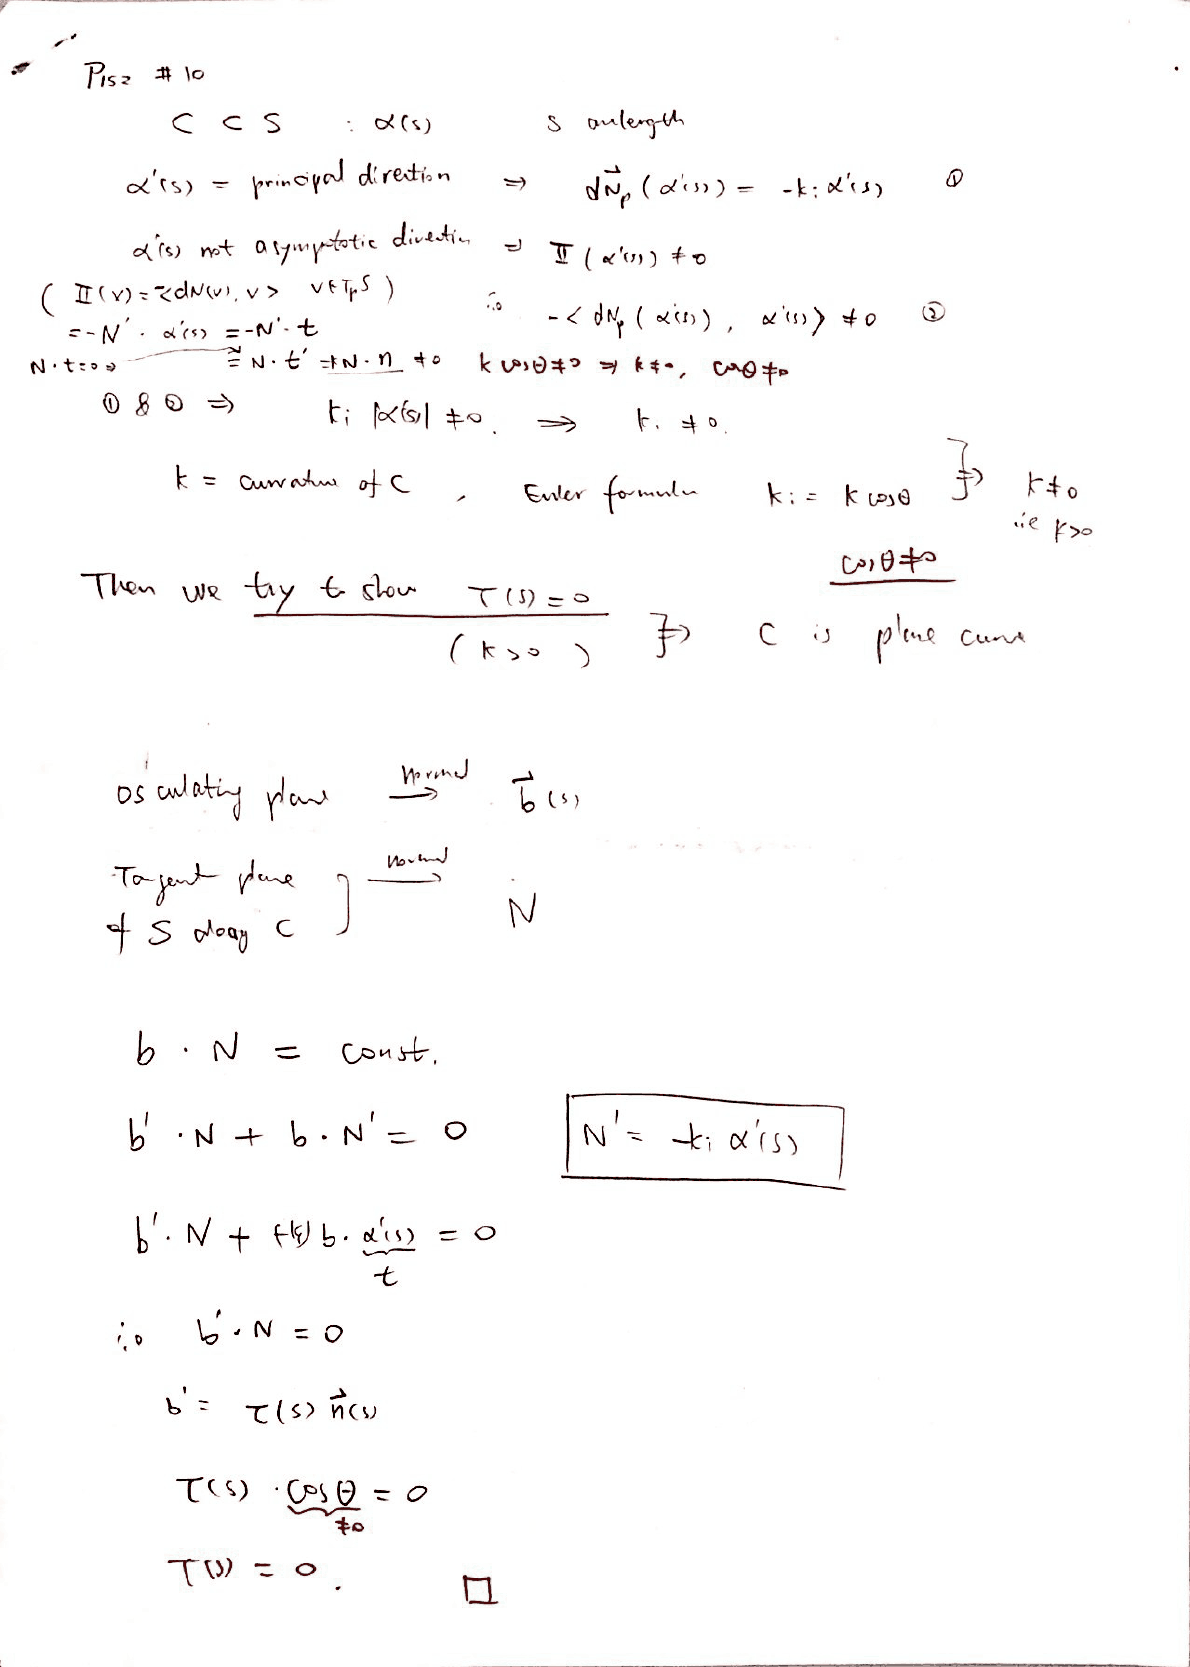 P152 #10
C ⊂ S : α(s) s arclength
α'(s) = principal direction ⇒ dN⃗p (α'(s)) = -ki α'(s) ①
α'(s) not asymptotic direction ⇒ II (α'(s)) ≠ 0
( II(v) = -<dN(v), v> v∈TpS ) ∴ -< dNp (α'(s)), α'(s)> ≠ 0 ②
= -N' · α'(s) = -N' · t
N·t=0 ⇒ = N · t' = kN · n ≠ 0 k cosθ ≠ 0 ⇒ k≠0, cosθ ≠ 0
① & ② ⇒ ki |α'(s)| ≠ 0. ⇒ ki ≠ 0.
k = curvature of C, Euler formula ki = k cosθ } ⇒ k≠0
i.e k>0
cosθ ≠ 0
Then we try to show τ(s) = 0
(k>0) } ⇒ C is plane curve
osculating plane →Normal b⃗(s)
Tangent plane
of S along C } →Normal N
b · N = const.
b' · N + b · N' = 0 N' = -ki α'(s)
b' · N + (-ki) b · α'(s) = 0
t
∴ b' · N = 0
b' = τ(s) n⃗(s)
τ(s) · cosθ = 0
≠0
τ(s) = 0. □